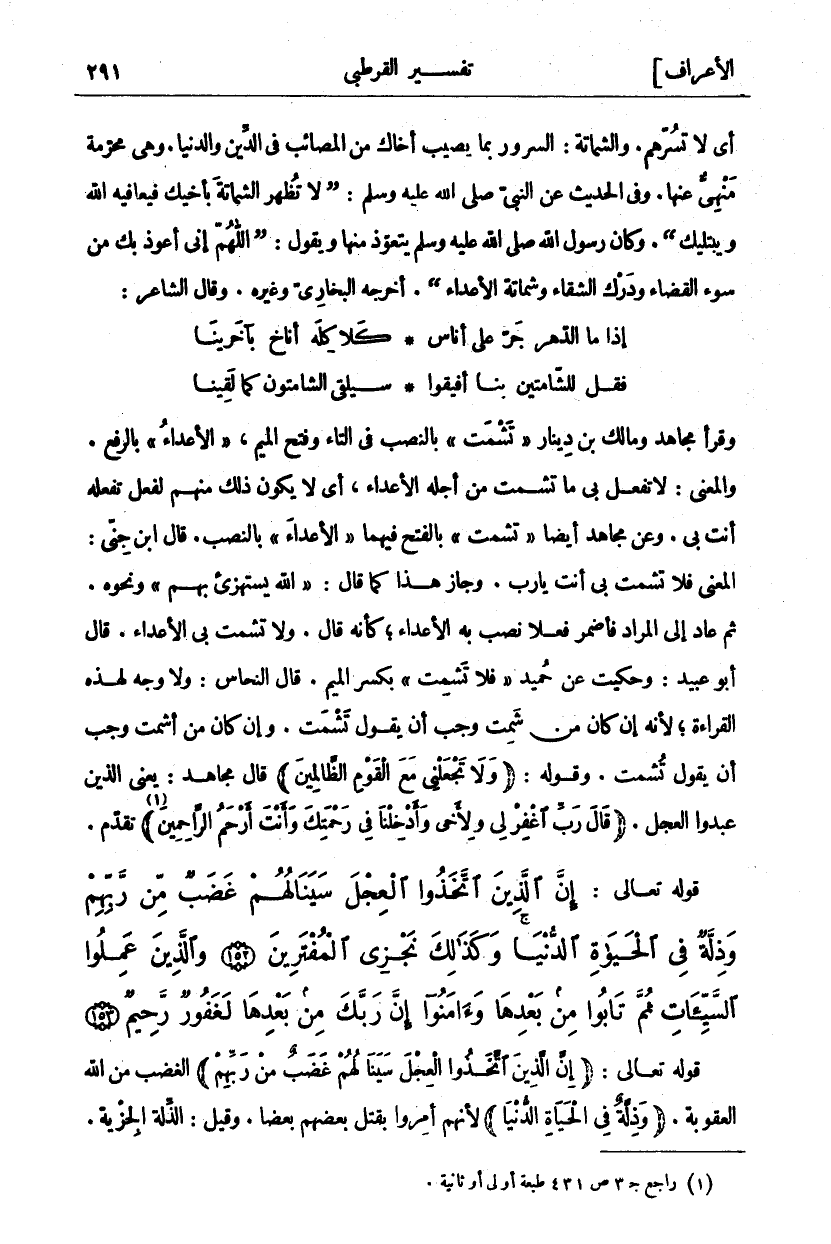 الأعراف] تفسير القرطبى ٢٩١
أى لا تسُرّهم. والشماتة : السرور بما يصيب أخاك من المصائب فى الدِّين والدنيا. وهى محرّمة
مَنْهِىٌّ عنها. وفى الحديث عن النبىّ صلى الله عليه وسلم : ”لا تُظهر الشماتةَ بأخيك فيعافيه الله
ويبتليك“. وكان رسول الله صلى الله عليه وسلم يتعوّذ منها ويقول : ”اللَّهُمّ إنى أعوذ بك من
سوء القضاء ودَرْك الشقاء وشماتة الأعداء“ . أخرجه البخارىّ وغيره . وقال الشاعر :
إذا ما الدّهر جَرّ على أناس * كَلاكِلَه أناخ بآخَرينَا
فقل للشّامتين بنا أفيقوا * سيلقى الشامتون كما لَقِينا
وقرأ مجاهد ومالك بن دِينار « تَشْمَت » بالنصب فى التاء وفتح الميم ، « الأعداءُ » بالرفع .
والمعنى : لا تفعل بى ما تشمت من أجله الأعداء ، أى لا يكون ذلك منهم لفعل تفعله
أنت بى . وعن مجاهد أيضا « تشمت » بالفتح فيهما « الأعداءَ » بالنصب. قال ابن جِنّى :
المعنى فلا تشمت بى أنت يارب . وجاز هذا كما قال : « الله يستهزئ بهم » ونحوه .
ثم عاد إلى المراد فأضمر فعلا نصب به الأعداء ؛ كأنه قال . ولا تشمت بى الأعداء . قال
أبو عبيد : وحكيت عن حُميد « فلا تَشْمِت » بكسر الميم . قال النحاس : ولا وجه لهذه
القراءة ؛ لأنه إن كان من شَمِت وجب أن يقول تَشْمَت . وإن كان من أشمت وجب
أن يقول تُشمت . وقوله : ﴿ وَلَا تَجْعَلْنِى مَعَ الْقَوْمِ الظَّالِمِينَ ﴾ قال مجاهد : يعنى الذين
عبدوا العجل . ﴿ قَالَ رَبِّ ٱغْفِرْ لِى وَلِأَخِى وَأَدْخِلْنَا فِى رَحْمَتِكَ وَأَنْتَ أَرْحَمُ الرَّاحِمِينَ ﴾(١) تقدّم .
قوله تعالى : إِنَّ ٱلَّذِينَ ٱتَّخَذُوا ٱلْعِجْلَ سَيَنَالُهُمْ غَضَبٌ مِّن رَّبِّهِمْ
وَذِلَّةٌ فِى ٱلْحَيَوٰةِ ٱلدُّنْيَا ۚ وَكَذَٰلِكَ نَجْزِى ٱلْمُفْتَرِينَ ١٥٢ وَٱلَّذِينَ عَمِلُوا
ٱلسَّيِّـَٔاتِ ثُمَّ تَابُوا مِنۢ بَعْدِهَا وَءَامَنُوٓا إِنَّ رَبَّكَ مِنۢ بَعْدِهَا لَغَفُورٌ رَّحِيمٌ ١٥٣
قوله تعالى : ﴿ إِنَّ الَّذِينَ ٱتَّخَذُوا الْعِجْلَ سَيَنَالُهُمْ غَضَبٌ مِنْ رَبِّهِمْ ﴾ الغضب من الله
العقوبة . ﴿ وَذِلَّةٌ فِى الْحَيَاةِ الدُّنْيَا ﴾ لأنهم أُمِروا بقتل بعضهم بعضا . وقيل : الذِّلة الجِزْية .
(١) راجع جـ ٣ ص ٤٣١ طبعة أولى أو ثانية .